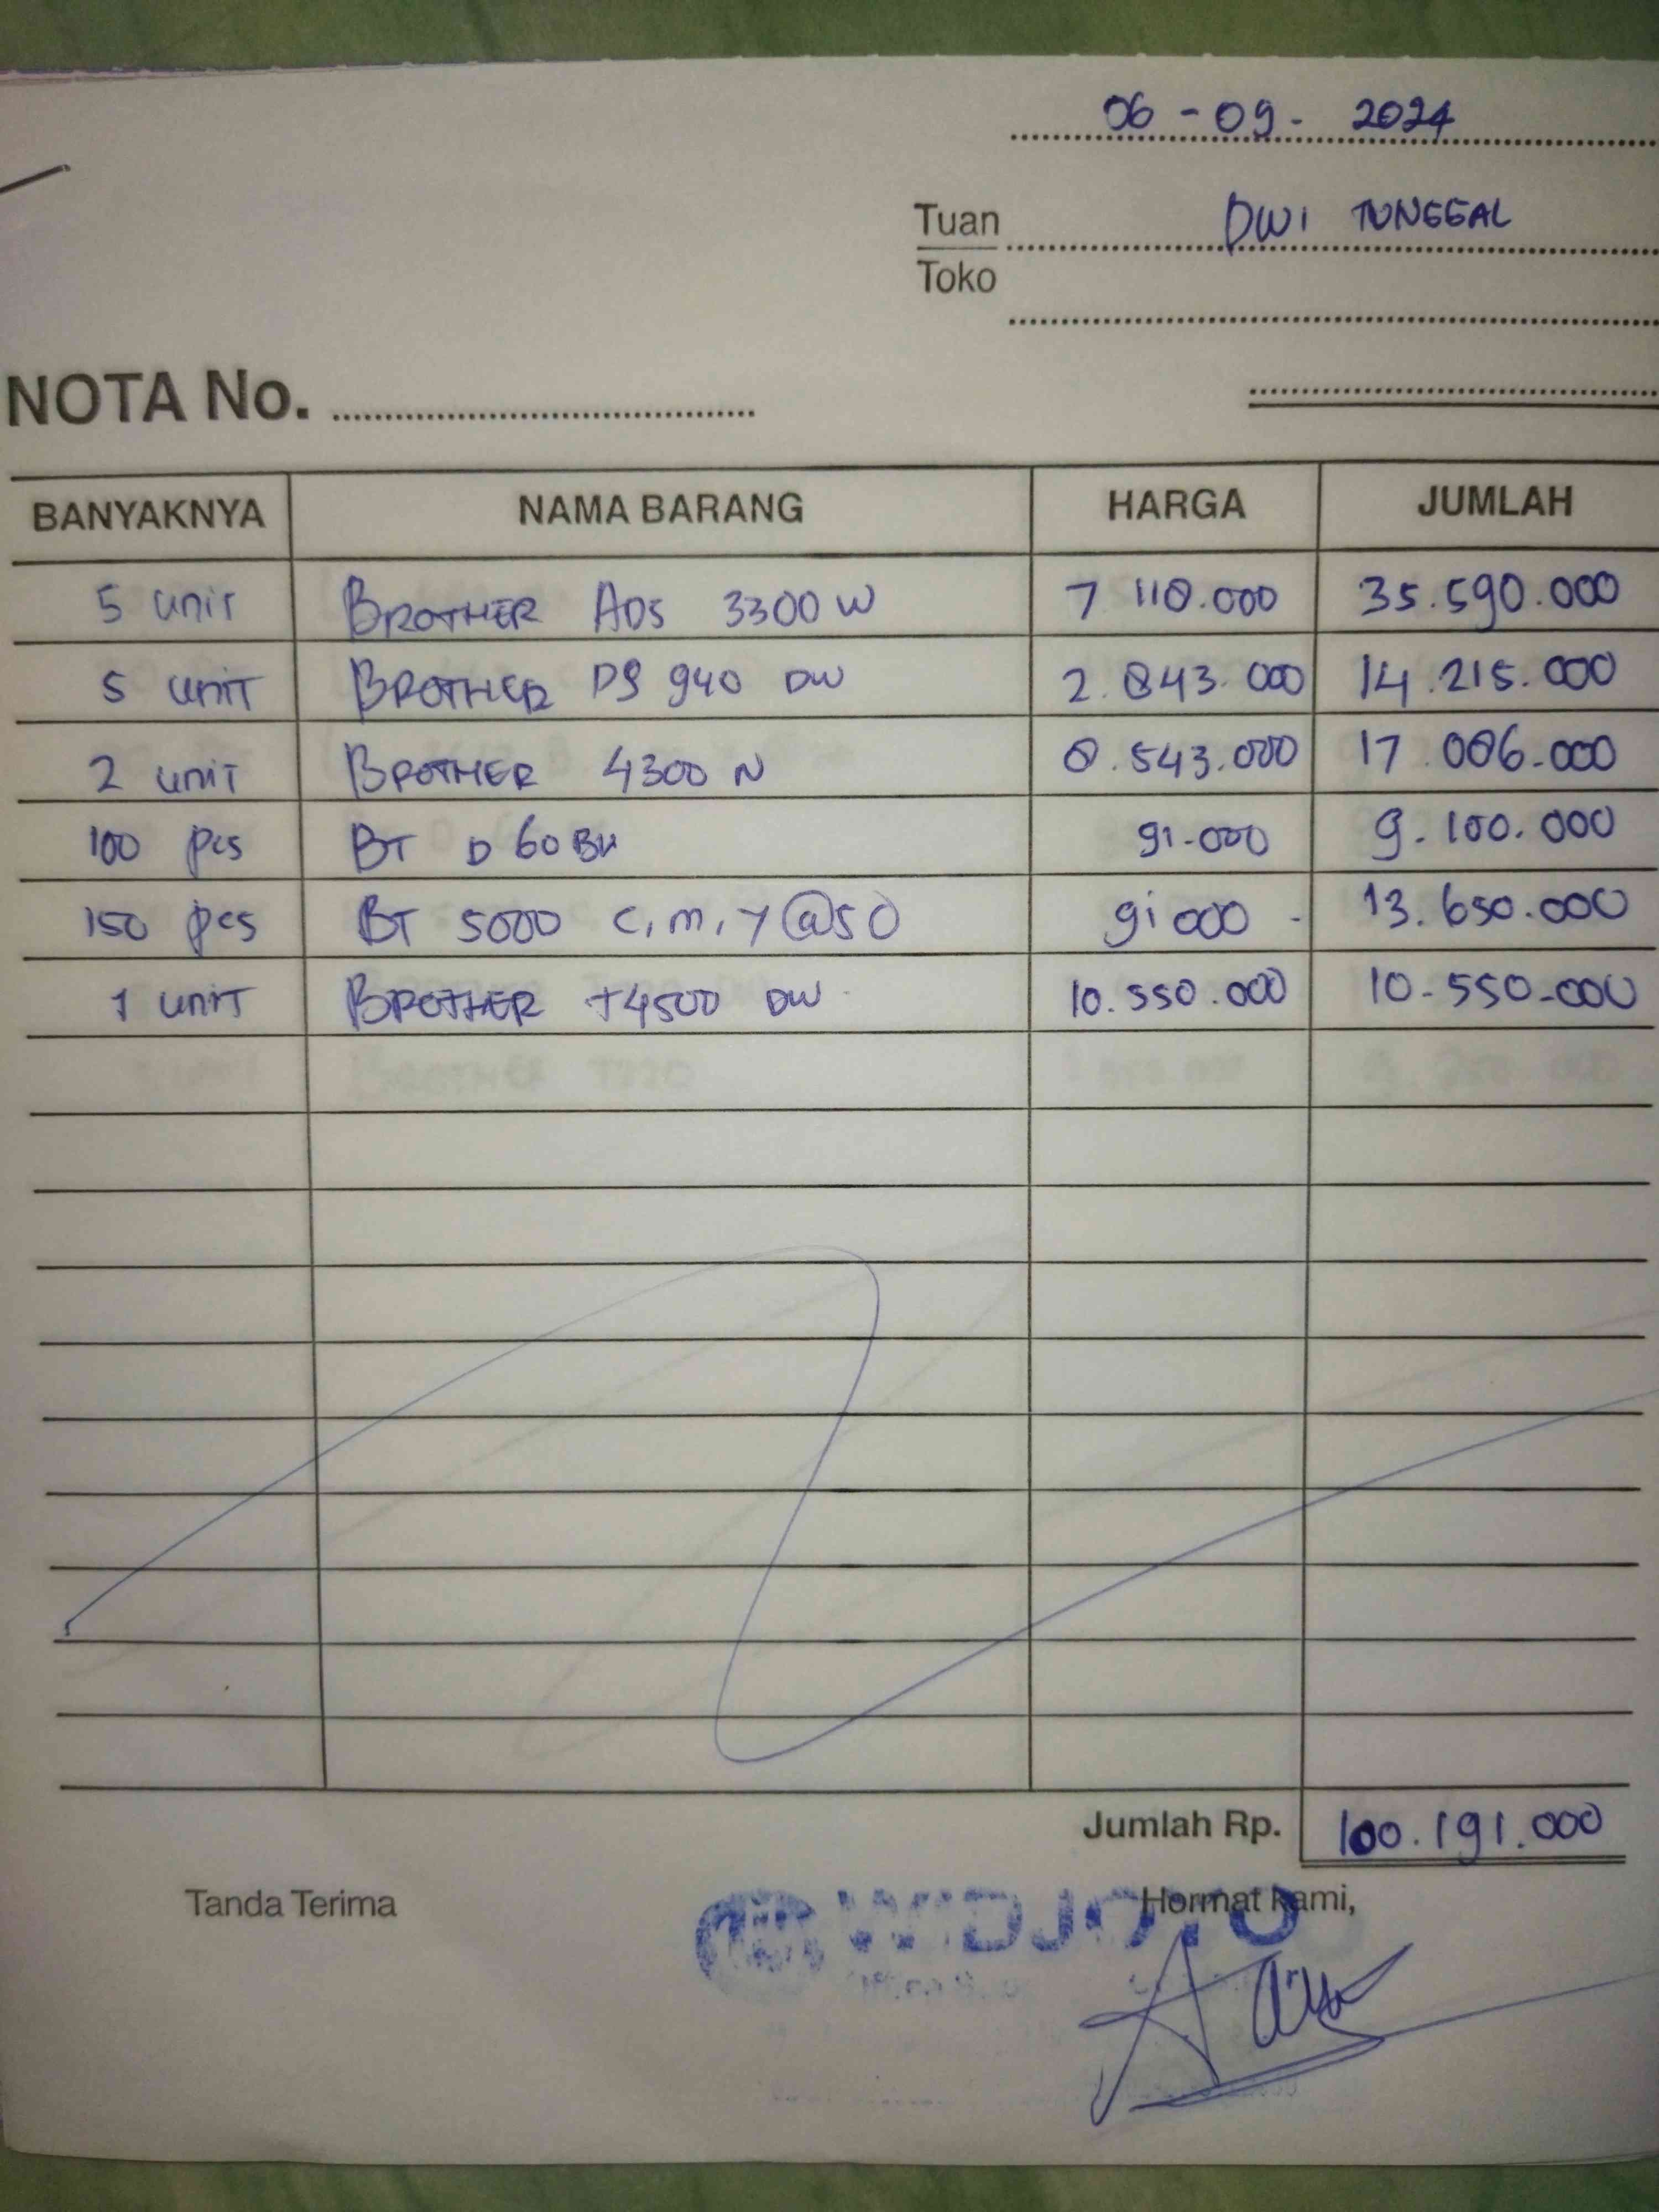 06 - 09 - 2024
Tuan DWI TUNGGAL
Toko
NOTA No.
BANYAKNYA NAMA BARANG HARGA JUMLAH
5 unit BROTHER ADS 3300 W 7 118.000 35.590.000
5 unit BROTHER DS 940 DW 2.843.000 14.215.000
2 unit BROTHER 4300 N 8.543.000 17.086.000
100 pcs BT D 60 BK 91.000 9.100.000
150 pcs BT 5000 C, M, Y @50 91 000 - 13.650.000
1 unit BROTHER T4500 DW 10.550.000 10.550.000
Jumlah Rp. 100.191.000
Tanda Terima Hormat Kami,
WIDJOJO